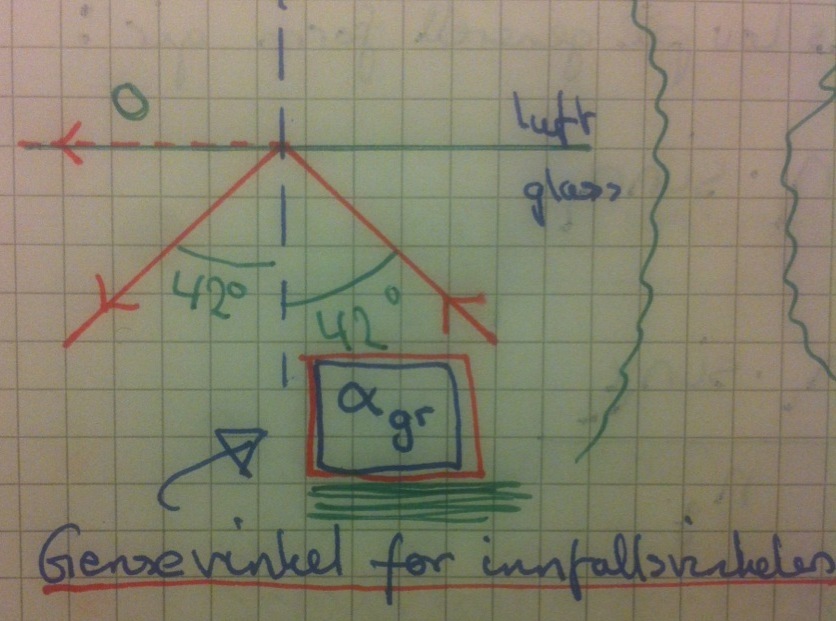 O
luft
glass
42°
42°
α gr
Gensevinkel for innfallsvinkelens